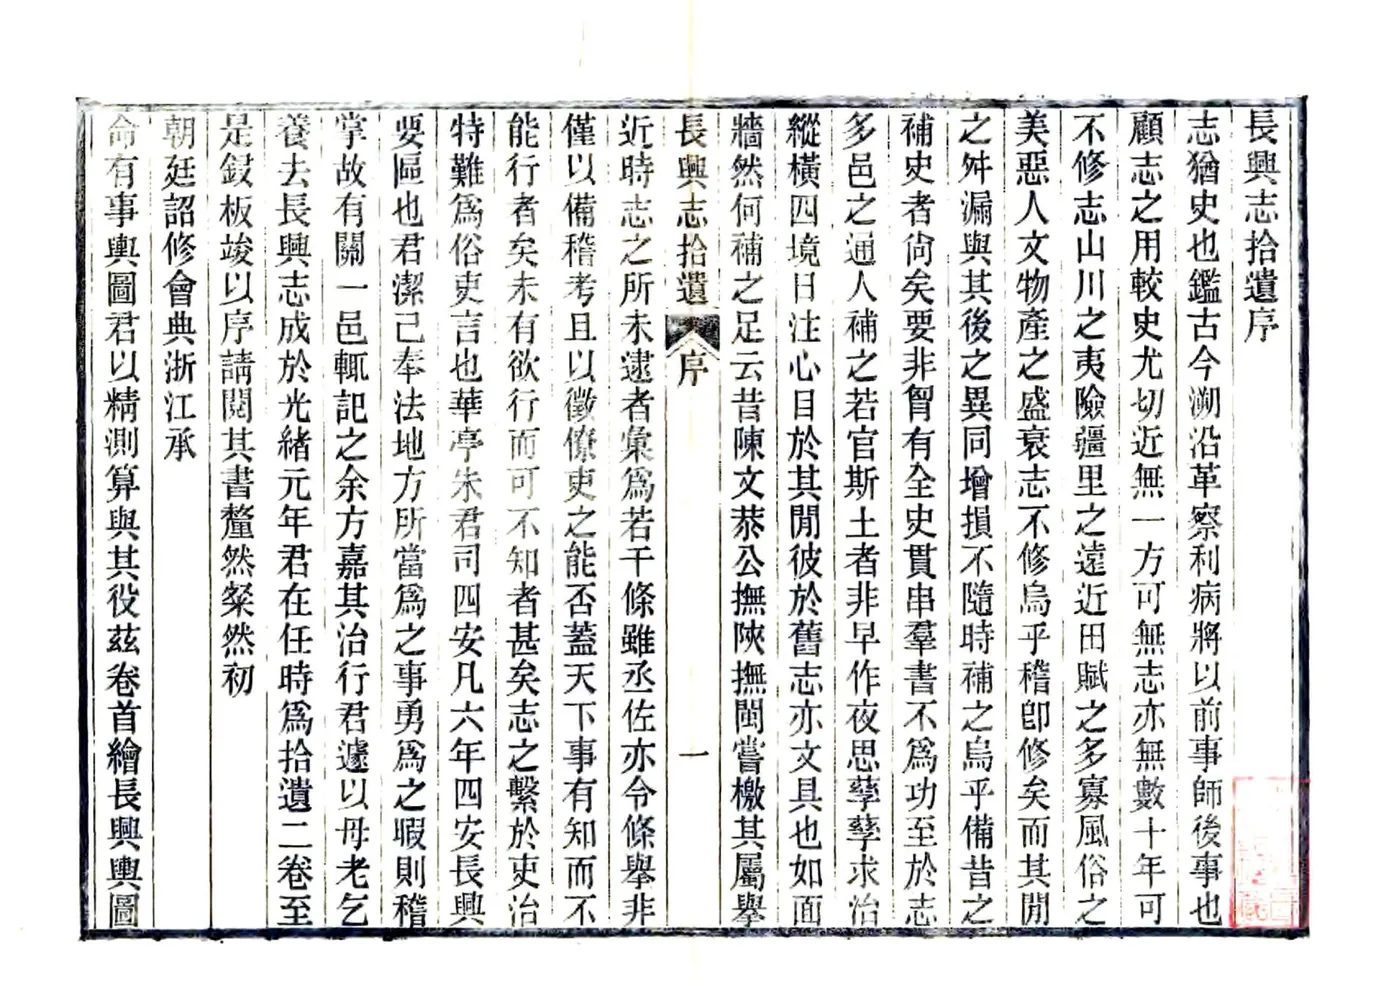 長興志拾遺序
志猶史也鑑古今溯沿革察利病將以前事師後事也
顧志之用較史尤切近無一方可無志亦無數十年可
不修志山川之夷險疆里之遠近田賦之多寡風俗之
美惡人文物產之盛衰志不修烏乎稽卽修矣而其閒
之舛漏與其後之異同增損不隨時補之烏乎備昔之
補史者尙矣要非胷有全史貫串羣書不爲功至於志
多邑之通人補之若官斯土者非早作夜思孳孳求治
縱橫四境日注心目於其閒彼於舊志亦文具也如面
牆然何補之足云昔陳文恭公撫陝撫閩嘗檄其屬舉
長興志拾遺 序 一
近時志之所未逮者彙爲若干條雖丞佐亦令條舉非
僅以備稽考且以徵僚吏之能否蓋天下事有知而不
能行者矣未有欲行而可不知者甚矣志之繫於吏治
特難爲俗吏言也華亭朱君司四安凡六年四安長興
要區也君潔己奉法地方所當爲之事勇爲之暇則稽
掌故有關一邑輒記之余方嘉其治行君遽以母老乞
養去長興志成於光緒元年君在任時爲拾遺二卷至
是鋟板竣以序請閱其書釐然粲然初
朝廷詔修會典浙江承
命有事輿圖君以精測算與其役茲卷首繪長興輿圖